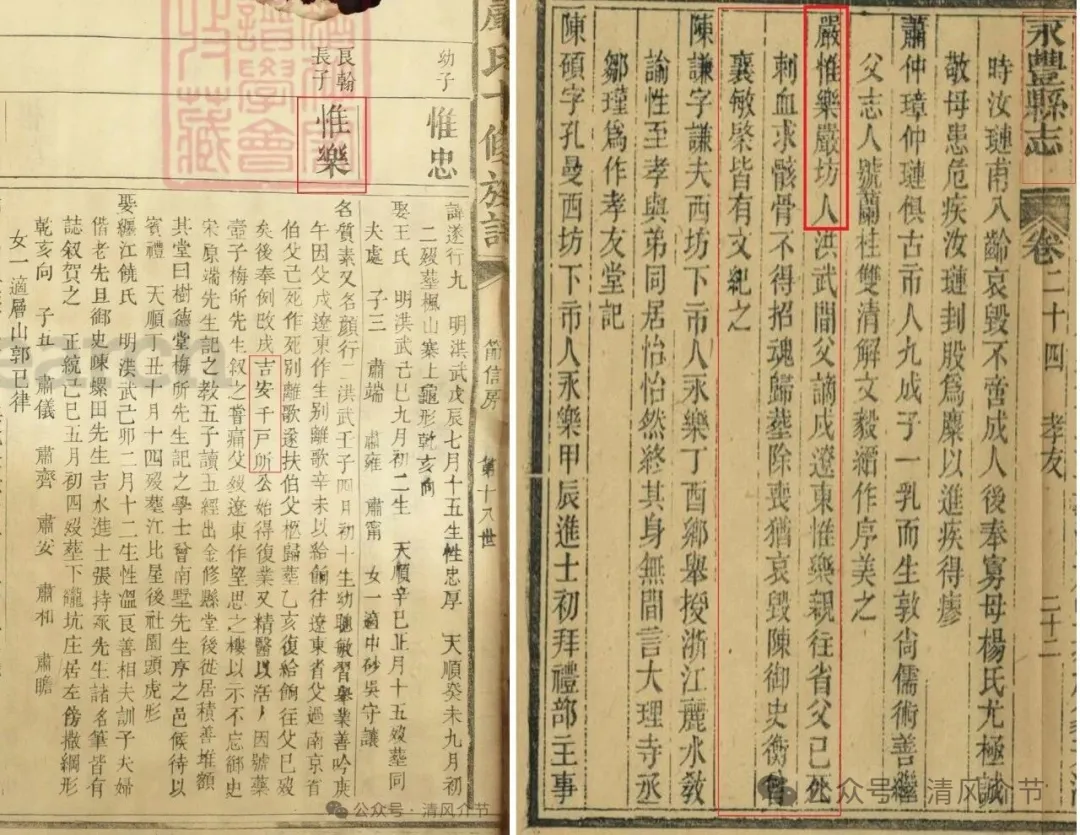 嚴氏十修族譜
節信房
第十八世
幼子
惟忠
諱遂行九 明洪武戊辰七月十五生性忠厚 天順癸未九月初
二歿葬楓山寨上龜形乾亥向
娶王氏 明洪武己巳九月初二生 天順辛巳正月十五歿葬同
夫處 子三 肅端 肅雍 肅甯 女一適中砂吳守讓
艮翰
長子
惟樂
名質素又名顏行二洪武壬子四月初十生幼聰敏習舉業善吟庚
午因父戍遼東作生別離歌辛未以給餉往遼東省父過南京省
伯父己死作死別離歌遂扶伯父柩歸葬乙亥復給餉往父已歿
矣後奉例改戍吉安千戸所公始得復業又精醫以活人因號藥
壼子梅所先生叙之嘗痛父歿遼東作望思之樓以示不忘御史
宋原端先生記之教五子讀五經出金修縣堂後徙居積善堆額
其堂曰樹德堂梅所先生記之學士曾南墅先生序之邑候待以
賓禮 天順丁丑十月十四歿葬江比星後社園頭虎形
娶繩江饒氏 明洪武己卯二月十二生性溫良善相夫訓子夫婦
偕老先旦御史陳螺田先生吉水進士張持承先生諸名筆皆有
誌叙賀之 正統己巳五月初四歿葬下瀧坑庄居左傍撒網形
乾亥向 子五 肅儀 肅齊 肅安 肅和 肅瞻
女一適層山郭已律
公众号·清风介节
永豐縣志
卷二十四 孝友 二十二
時汝璉甫入齡哀毀不啻成人後奉寡母楊氏尤極誠
敬母患危疾汝璉刲股爲糜以進疾得瘳
蕭仲璋仲璉俱古市人九成子一乳而生敦尙儒術善繼
父志人號蘭桂雙清解文毅縉作序美之
嚴惟樂嚴坊人洪武間父謫戍遼東惟樂親往省父已死
刺血求骸骨不得招魂歸葬除喪猶哀毀陳御史衡曾
襄敏棨皆有文紀之
陳謙字謙夫西坊下市人永樂丁酉鄉舉授浙江麗水敎
諭性至孝與弟同居怡怡然終其身無間言大理寺丞
鄒瑾爲作孝友堂記
陳碩字孔曼西坊下市人永樂甲辰進士初拜禮部主事
公众号·清风介节